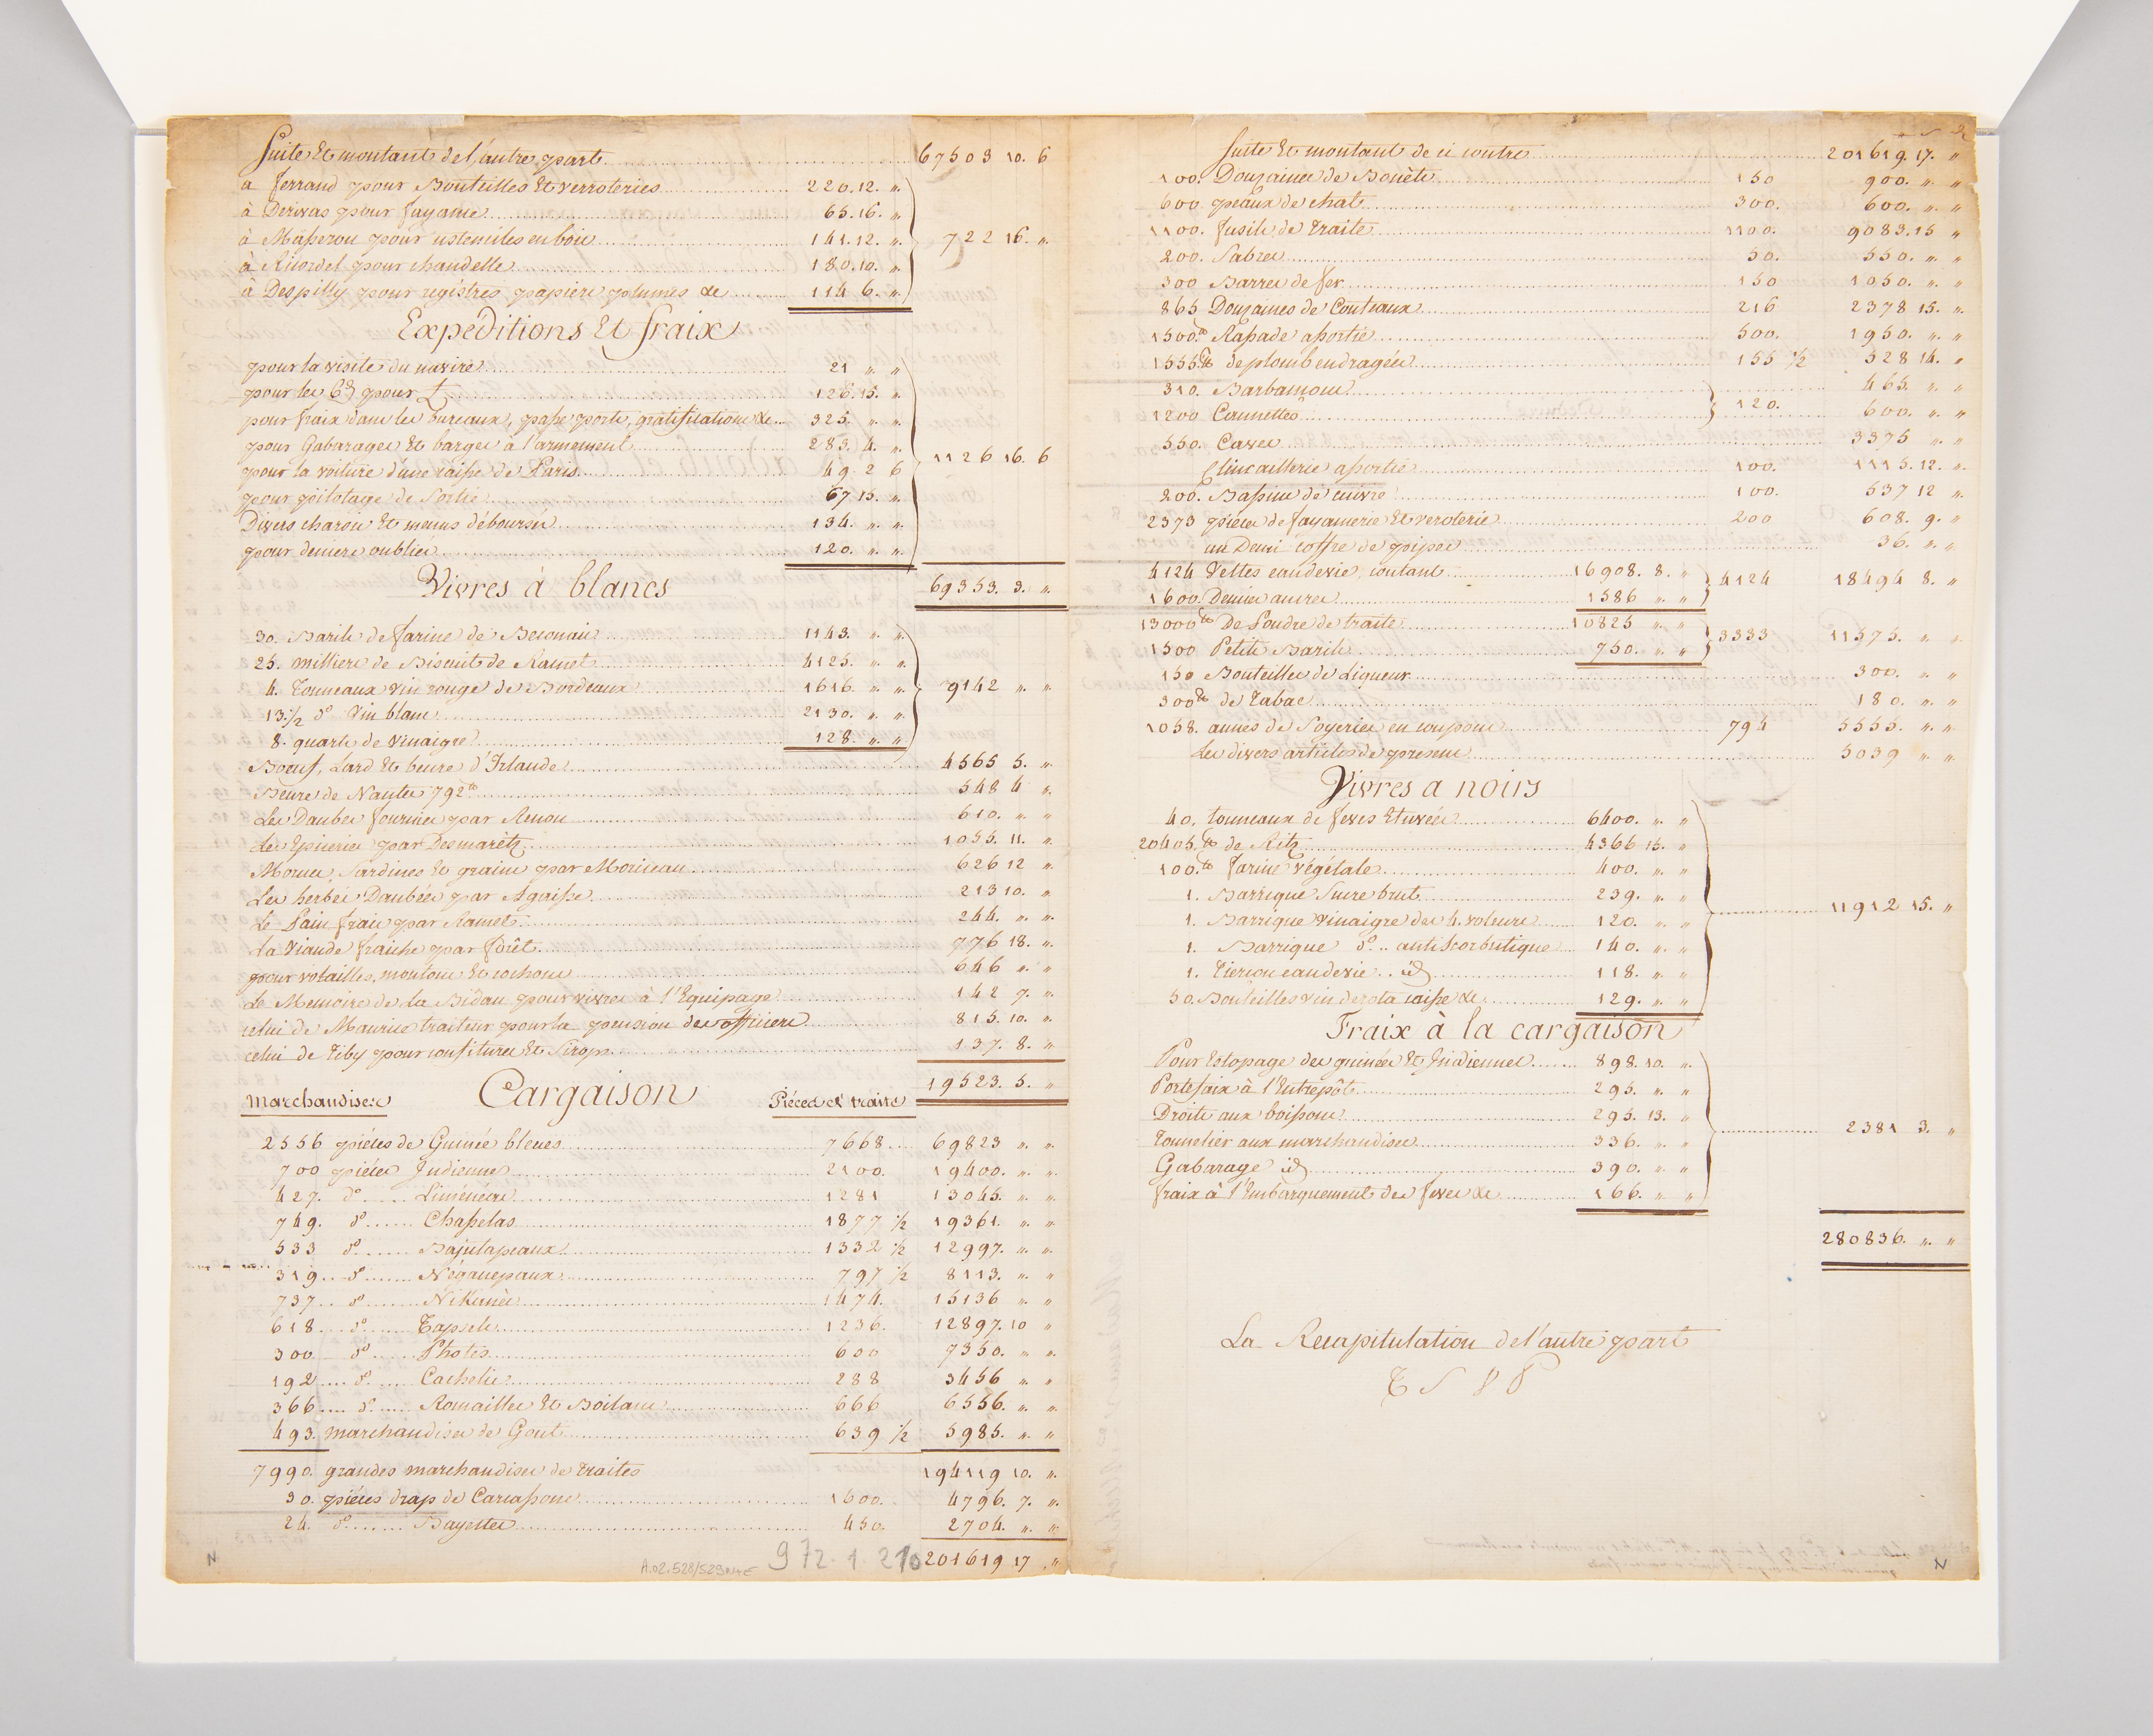 Suite Et montant de l'autre part 67503 10. 6
a ferrand pour Bouteilles Et verroteries 220.12. "
à Derivas pour fayance 65.16. "
à Masserou pour ustenciles en bois 141.12. " 722 16. "
à Ricordel pour chandelle 180.10. "
à Despilly pour registres papiers plumes &c 114 6. "
Expéditions Et fraix
pour la visite du navire 21 " "
pour les pour 126.15. "
pour fraix dans les bureaux, passe-ports, gratifications &c 325. " "
pour Gabarages Et barges à l'armement 283. 4. "
pour la voiture d'une caisse de Paris 49. 2 6 1126 16. 6
pour pilotage de Sortie 67 15. "
Divers charois Et menus déboursés 134. " "
pour deniers oubliés 120. " "
Vivres à blancs 69353. 3. "
30. Barils de farine de 1143. " "
25. milliers de Biscuits de Ramet 4125. " "
4. Tonneaux vin rouge de Bordeaux 1616. " " 9142 " "
13.½ do Vin blanc 2130. " "
8. quarts de Vinaigre 128. " "
Boeuf, Lard Et beure d'Irlande 4565 5. "
Beure de Nantes 792 lb 548 4 "
Les Daubes fournies par Renou 610. " "
Les Epiceries par Desmarêtz 1055. 11. "
Morues, Sardines Et grains par Moriceau 626 12 "
Les herbes Daubées par Agaisse 213 10. "
Le Pain frais par Ramet 244. " "
La Viande fraiche par forêt 776 18. "
pour volailles, moutons Et cochons 646 " "
Le Memoire de la Bidau pour vivres à l'Equipage 142 7. "
celui de Maurice traiteur pour la pension des officiers 815. 10. "
celui de Tiby pour confitures Et Sirops 137. 8. "
19523. 5. "
marchandises Cargaison Piéces de traite
2556 piéces de Guinée bleues 7668 69823 " "
700 piéces Indienne 2100. 19400. " "
427. do Liménéas 1281 13045. " "
749. do Chasselas 1877 ½ 19361. " "
533 do Bajutapeaux 1332 ½ 12997. " "
319 do Néganepaux 797 ½ 8113. " "
737 do Nikanées 1474. 15136 " "
618 do Tapsels 1236. 12897. 10 "
300 do Photes 600 7350. " "
192 do Cachelis 288 3456 " "
366 do Romailles Et Boilans 666 6556. " "
493. marchandises de Gout 639 ½ 5985. " "
7990. grandes marchandises de traites 194119 10. "
30. piéces drap de Carcassone 1600. 4796. 7. "
24. do Bayettes 450. 2704. " "
A.02.528/529 N+E 972.1.210 201619 17 "
N
Suite Et montant de ci contre 201619. 17. "
100. Douzaines de Bonêts 150 900. " "
600 peaux de chats 300. 600. " "
1100. fusils de traite 1100. 9083. 15 "
200. Sabres 50. 550. " "
300 Barres de fer 150 1050. " "
865 Douzaines de Couteaux 216 2378 15. "
1500 lb Rassade assortie 500. 1950. " "
1555 lb de plomb en dragées 155 ½ 528 14. "
310. Barbamous 465. " "
1200 Cannettes 120. 600. " "
550. Caves 3375 " "
Clincaillerie assortie 100. 1115. 12. "
200. Bassins de cuivre 100. 537 12 "
2373 piéces de fayancerie Et veroterie 200 608. 9. "
un Demi coffre de pipes 36. " "
4124 Veltes eau de vie, coutant 16908. 8. " 4124 18494 8. "
1600. Demies ancres 1586 " "
13000 lb De Poudre de traite 10825 " " 3333 11575. " "
1500 Petits Barils 750. " "
150 Bouteilles de Liqueurs 300. " "
300 lb de Tabac 180. " "
1058. aunes de Soyeries en coupons 794 5555. " "
Les divers articles de presens 5039 " "
Vivres a noirs
40. tonneaux de feves Etuvées 6400. " "
20405 lb de Ritz 4366 15. "
100. lb farine végétale 400. " "
1. Barrique Sucre brut 239. " "
1. Barrique vinaigre des 4. voleurs 120. " " 11912 15. "
1. Barrique do antiscorbutique 140. " "
1. Tierçon eau de vie id 118. " "
50. Bouteilles vin de rota caisse &c 129. " "
Fraix à la cargaison
Pour Estopage des guinées Et Indiennes 898. 10. "
Portefaix à l'Entrepôt 295. " "
Droits aux boissons 295. 13. "
Tonnelier aux marchandises 336. " " 2381 3. "
Gabarage id 390. " "
fraix à l'Embarquement des feves &c 166. " "
280836. " "
La Recapitulation de l'autre part
T S V P
N